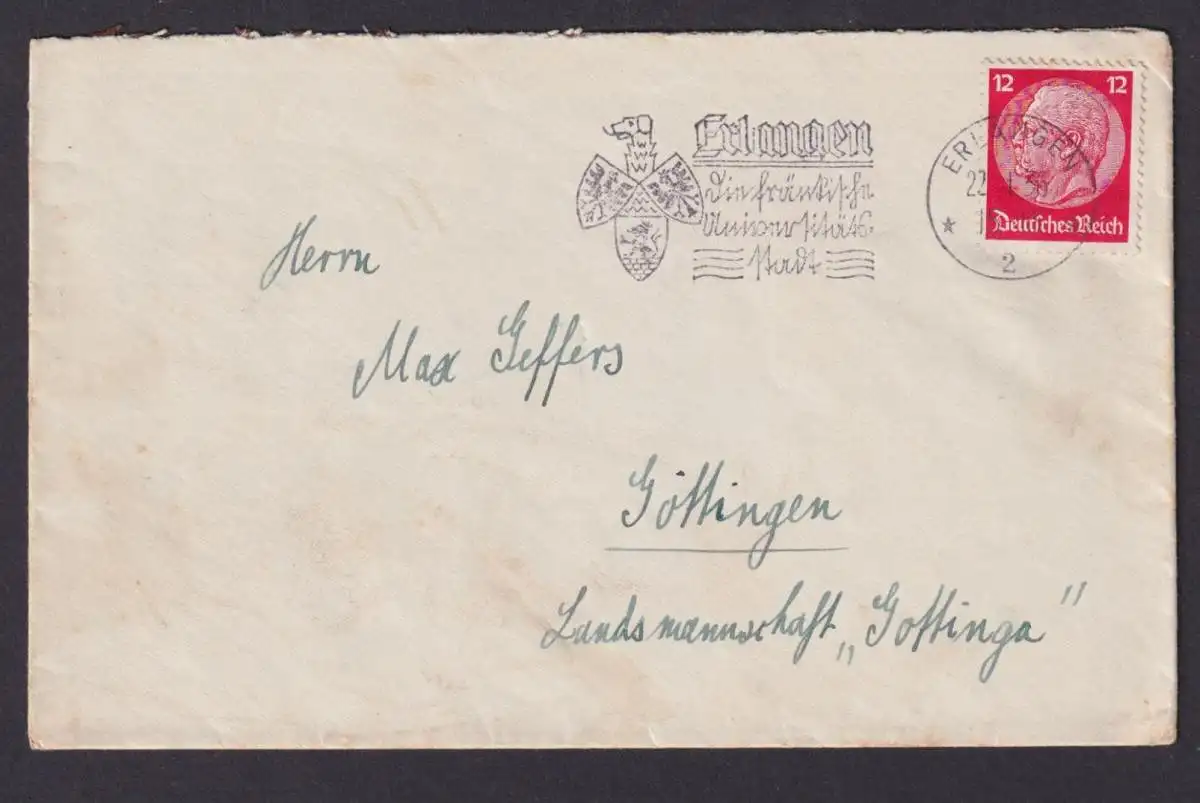 12 12
Deutsches Reich
ERLANGEN
22.
2
Erlangen
Die fränkische
Universitäts-
stadt
Herrn
Max Geffers
Göttingen
Landsmannschaft „Gottinga"